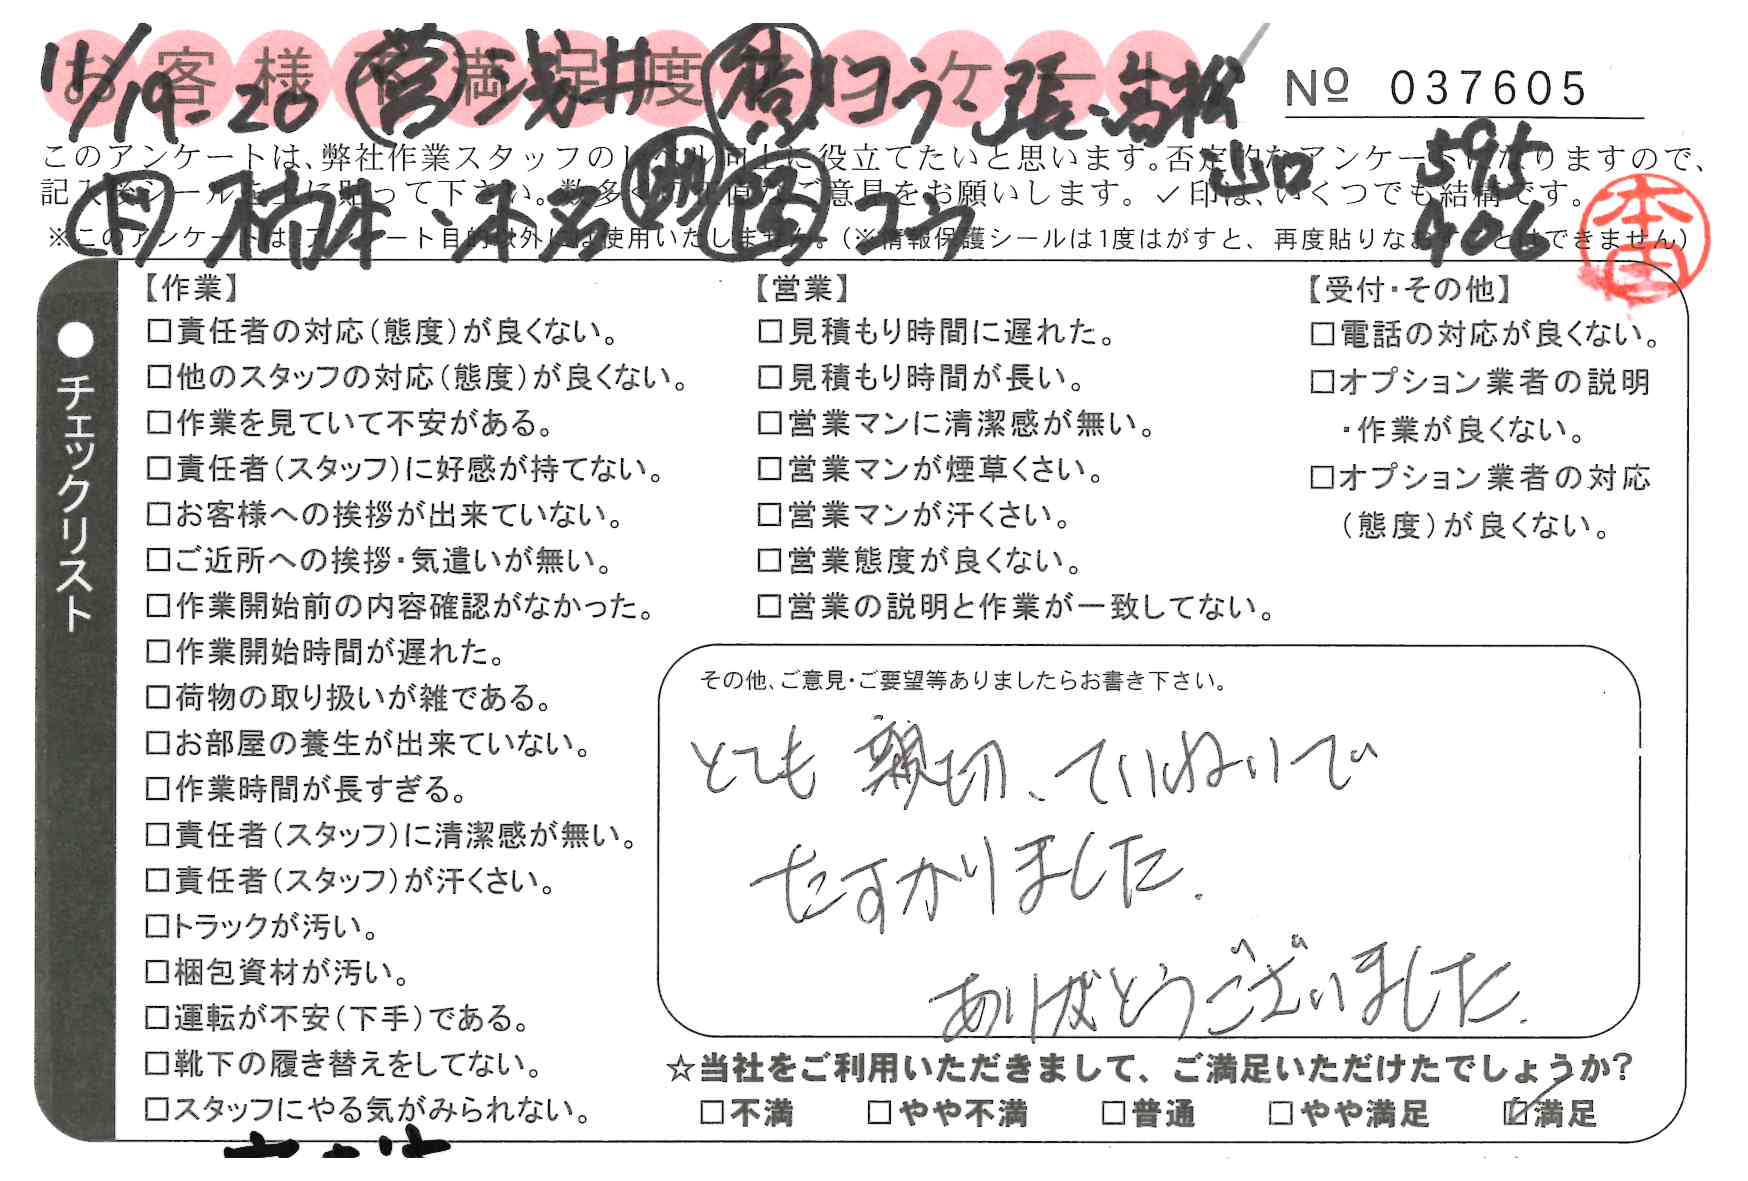 お客様不満足度アンケート
11/19-20 営 浅井 梱 コウ・張・高松
NO 037605
このアンケートは、弊社作業スタッフのレベル向上に役立てたいと思います。否定的なアンケートになりますので、
山口 595
記入後シールを上に貼って下さい。数多くの正直なご意見をお願いします。✓印は、いくつでも結構です。
コウ 406
※このアンケートは、アンケート目的以外には使用いたしません。(※情報保護シールは1度はがすと、再度貼りなおすことはできません)
●チェックリスト
【作業】
□責任者の対応(態度)が良くない。
□他のスタッフの対応(態度)が良くない。
□作業を見ていて不安がある。
□責任者(スタッフ)に好感が持てない。
□お客様への挨拶が出来ていない。
□ご近所への挨拶・気遣いが無い。
□作業開始前の内容確認がなかった。
□作業開始時間が遅れた。
□荷物の取り扱いが雑である。
□お部屋の養生が出来ていない。
□作業時間が長すぎる。
□責任者(スタッフ)に清潔感が無い。
□責任者(スタッフ)が汗くさい。
□トラックが汚い。
□梱包資材が汚い。
□運転が不安(下手)である。
□靴下の履き替えをしてない。
□スタッフにやる気がみられない。
【営業】
□見積もり時間に遅れた。
□見積もり時間が長い。
□営業マンに清潔感が無い。
□営業マンが煙草くさい。
□営業マンが汗くさい。
□営業態度が良くない。
□営業の説明と作業が一致してない。
【受付・その他】
□電話の対応が良くない。
□オプション業者の説明
・作業が良くない。
□オプション業者の対応
(態度)が良くない。
その他、ご意見・ご要望等ありましたらお書き下さい。
とても親切、ていねいで
たすかりました.
ありがとうございました.
☆当社をご利用いただきまして、ご満足いただけたでしょうか?
□不満 □やや不満 □普通 □やや満足 ☑満足